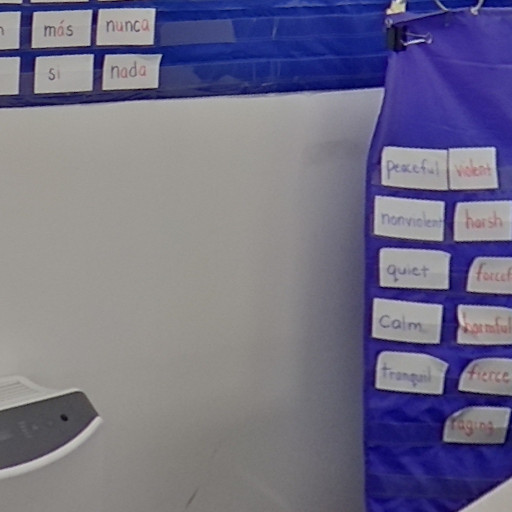 más nunca
si nada
peaceful violent
nonviolent harsh
quiet forcef
calm harmful
tranquil fierce
raging